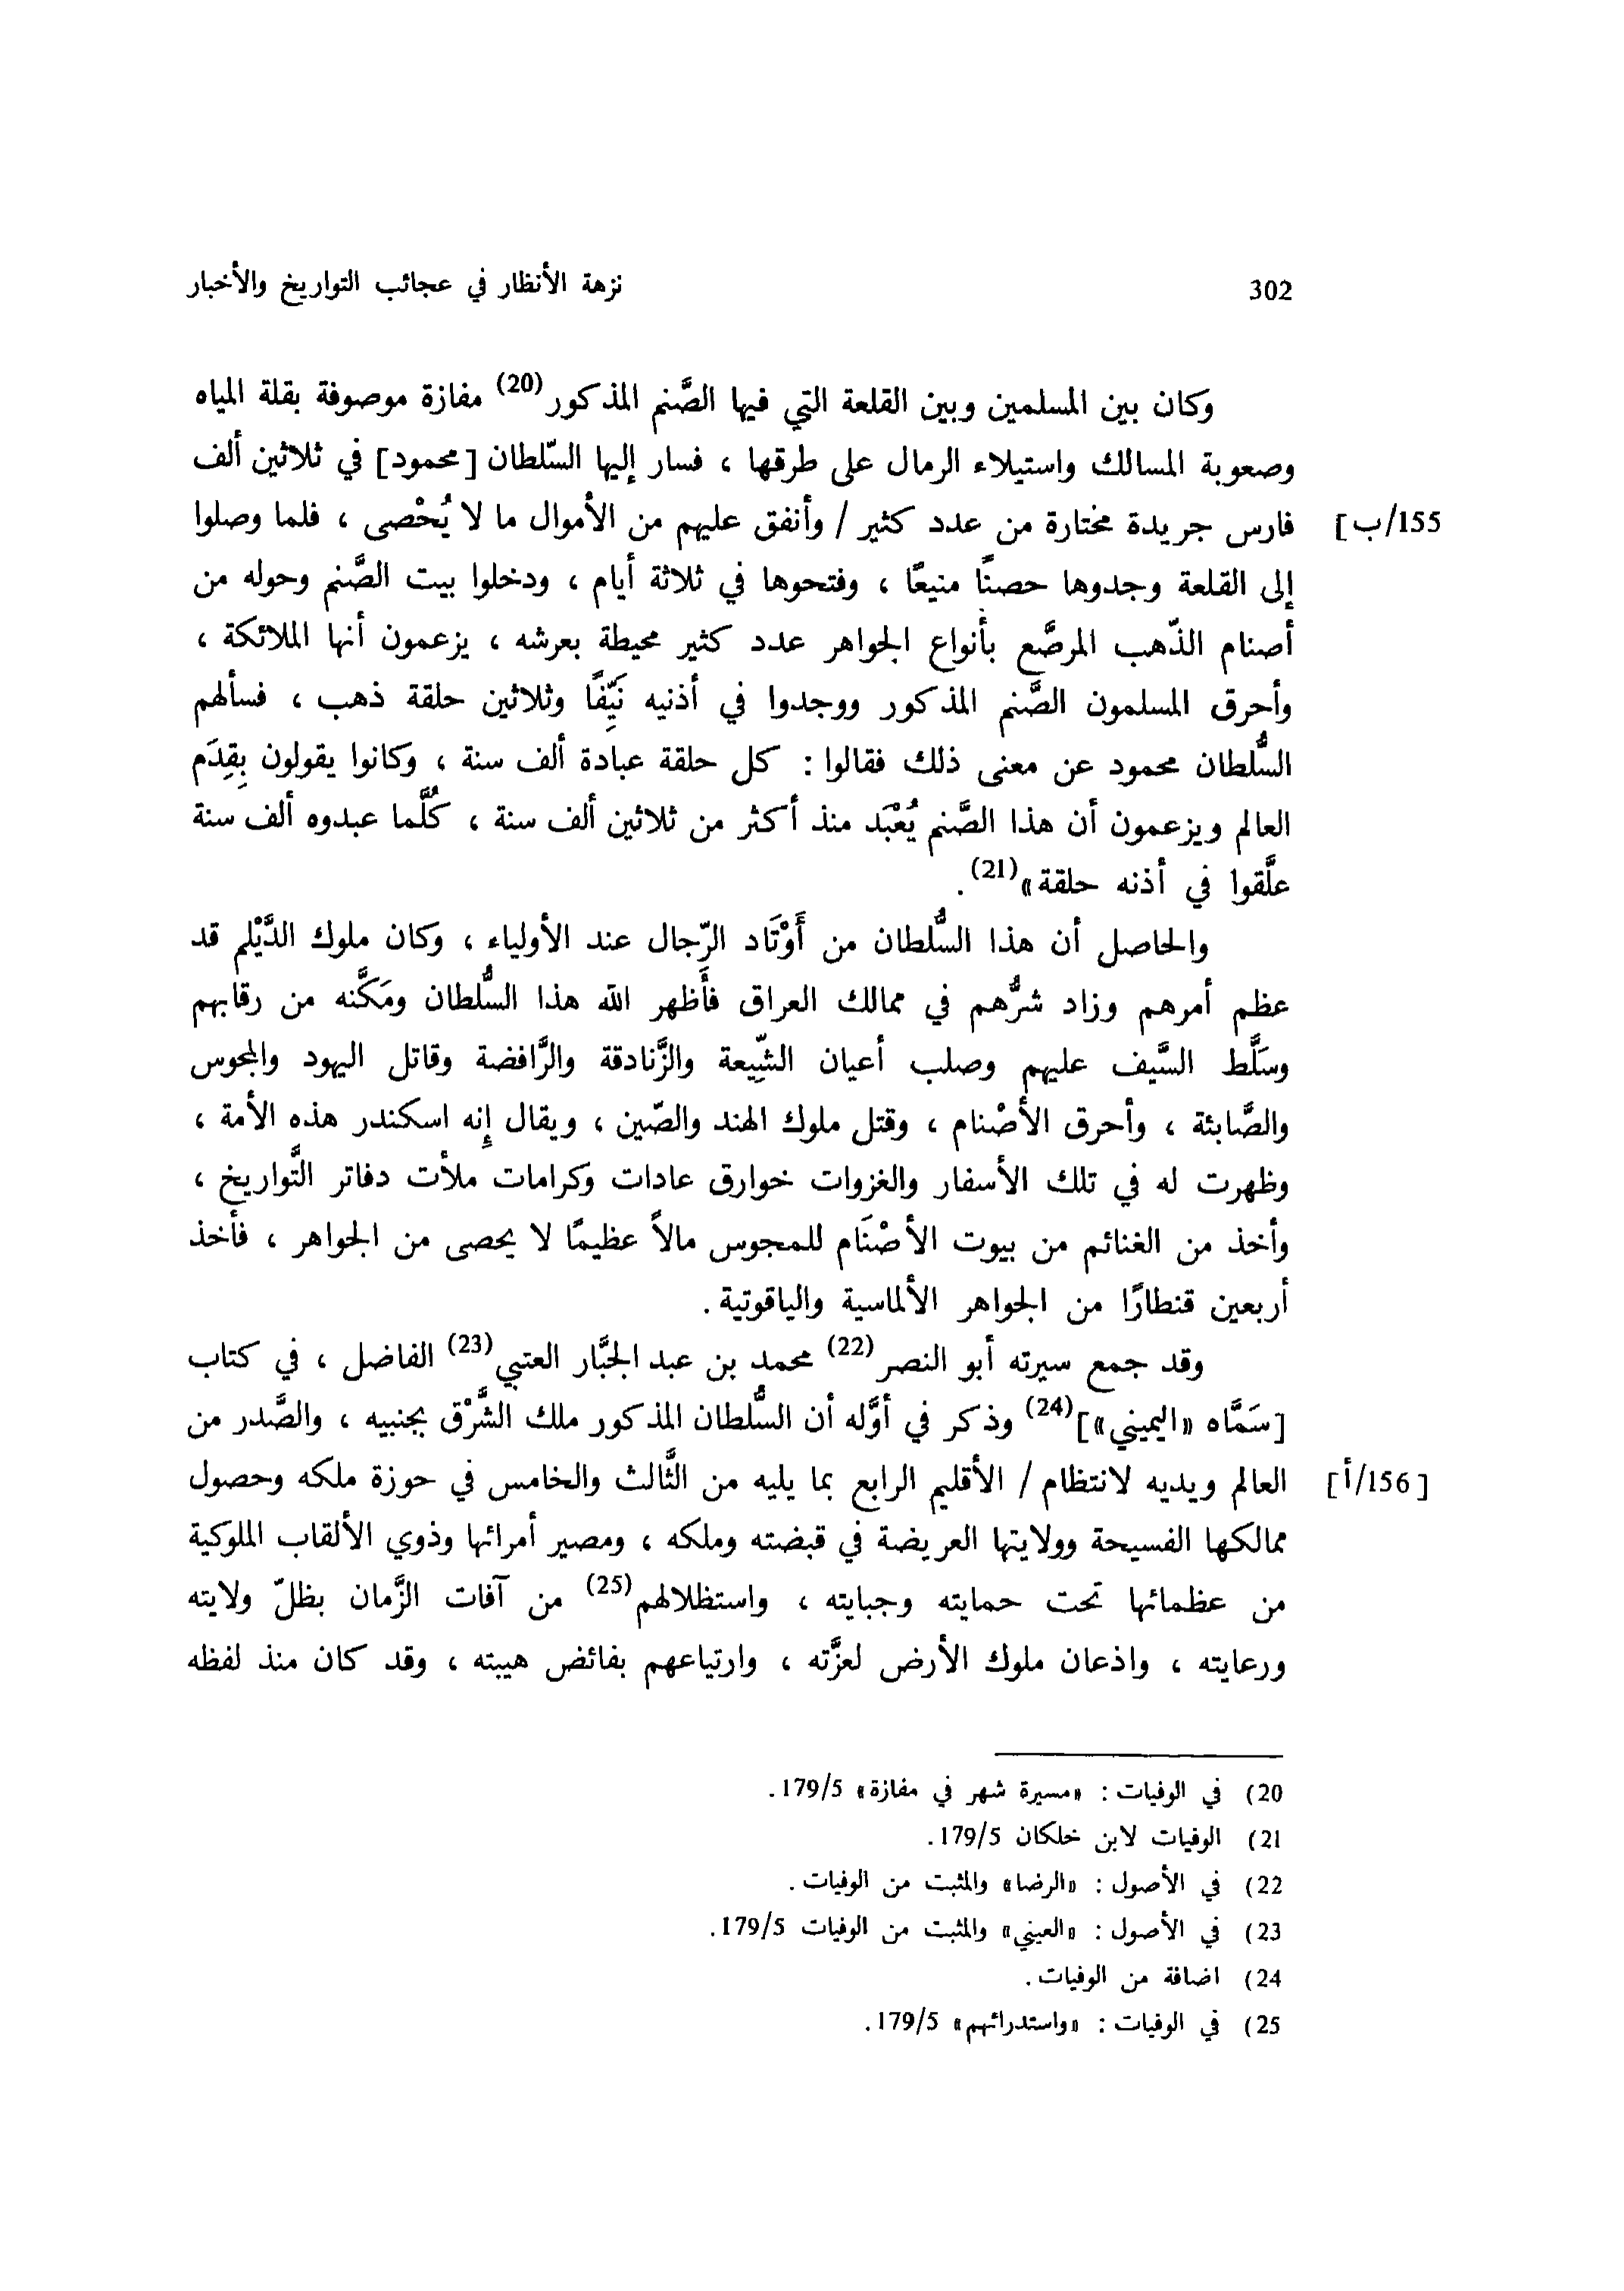 302 نزهة الأنظار في عجائب التواريخ والأخبار
وكان بين المسلمين وبين القلعة التي فيها الصَّنم المذكور(20) مفازة موصوفة بقلة المياه
وصعوبة المسالك واستيلاء الرمال على طرقها ، فسار إليها السّلطان [محمود] في ثلاثين ألف
155/ب] فارس جريدة مختارة من عدد كثير / وأنفق عليهم من الأموال ما لا يُحْصى ، فلما وصلوا
إلى القلعة وجدوها حصنًا منيعًا ، وفتحوها في ثلاثة أيام ، ودخلوا بيت الصَّنم وحوله من
أصنام الذّهب المرصَّع بأنواع الجواهر عدد كثير محيطة بعرشه ، يزعمون أنها الملائكة ،
وأحرق المسلمون الصَّنم المذكور ووجدوا في أذنيه نَيِّفًا وثلاثين حلقة ذهب ، فسألهم
السُّلطان محمود عن معنى ذلك فقالوا : كل حلقة عبادة ألف سنة ، وكانوا يقولون بِقِدَم
العالم ويزعمون أن هذا الصَّنم يُعْبَد منذ أكثر من ثلاثين ألف سنة ، كُلَّما عبدوه ألف سنة
علَّقوا في أذنه حلقة»(21) .
والحاصل أن هذا السُّلطان من أَوْتَاد الرّجال عند الأولياء ، وكان ملوك الدَّيْلم قد
عظم أمرهم وزاد شرُّهم في ممالك العراق فأَظهر الله هذا السُّلطان ومَكَّنه من رقابهم
وسَلَّط السَّيف عليهم وصلب أعيان الشِّيعة والزَّنادقة والرَّافضة وقاتل اليهود والمجوس
والصَّابئة ، وأحرق الأصْنام ، وقتل ملوك الهند والصّين ، ويقال إنه اسكندر هذه الأمة ،
وظهرت له في تلك الأسفار والغزوات خوارق عادات وكرامات ملأت دفاتر التَّواريخ ،
وأخذ من الغنائم من بيوت الأصْنَام للمجوس مالاً عظيمًا لا يحصى من الجواهر ، فأخذ
أربعين قنطارًا من الجواهر الألماسية والياقوتية .
وقد جمع سيرته أبو النصر(22) محمد بن عبد الجَبَّار العتبي(23) الفاضل ، في كتاب
[سَمَّاه «اليميني»](24) وذكر في أوَّله أن السُّلطان المذكور ملك الشَّرْق بجنبيه ، والصَّدر من
[156/أ] العالم ويديه لانتظام / الأقليم الرابع بما يليه من الثَّالث والخامس في حوزة ملكه وحصول
ممالكها الفسيحة وولايتها العريضة في قبضته وملكه ، ومصير أمرائها وذوي الألقاب الملوكية
من عظمائها تحت حمايته وجبايته ، واستظلالهم(25) من آفات الزَّمان بظلّ ولايته
ورعايته ، واذعان ملوك الأرض لعزَّته ، وارتياعهم بفائض هيبته ، وقد كان منذ لفظه
20) في الوفيات : «مسيرة شهر في مفازة» 179/5.
21) الوفيات لابن خلكان 179/5.
22) في الأصول : «الرضا» والمثبت من الوفيات .
23) في الأصول : «العيني» والمثبت من الوفيات 179/5.
24) اضافة من الوفيات .
25) في الوفيات : «واستدرائهم» 179/5.